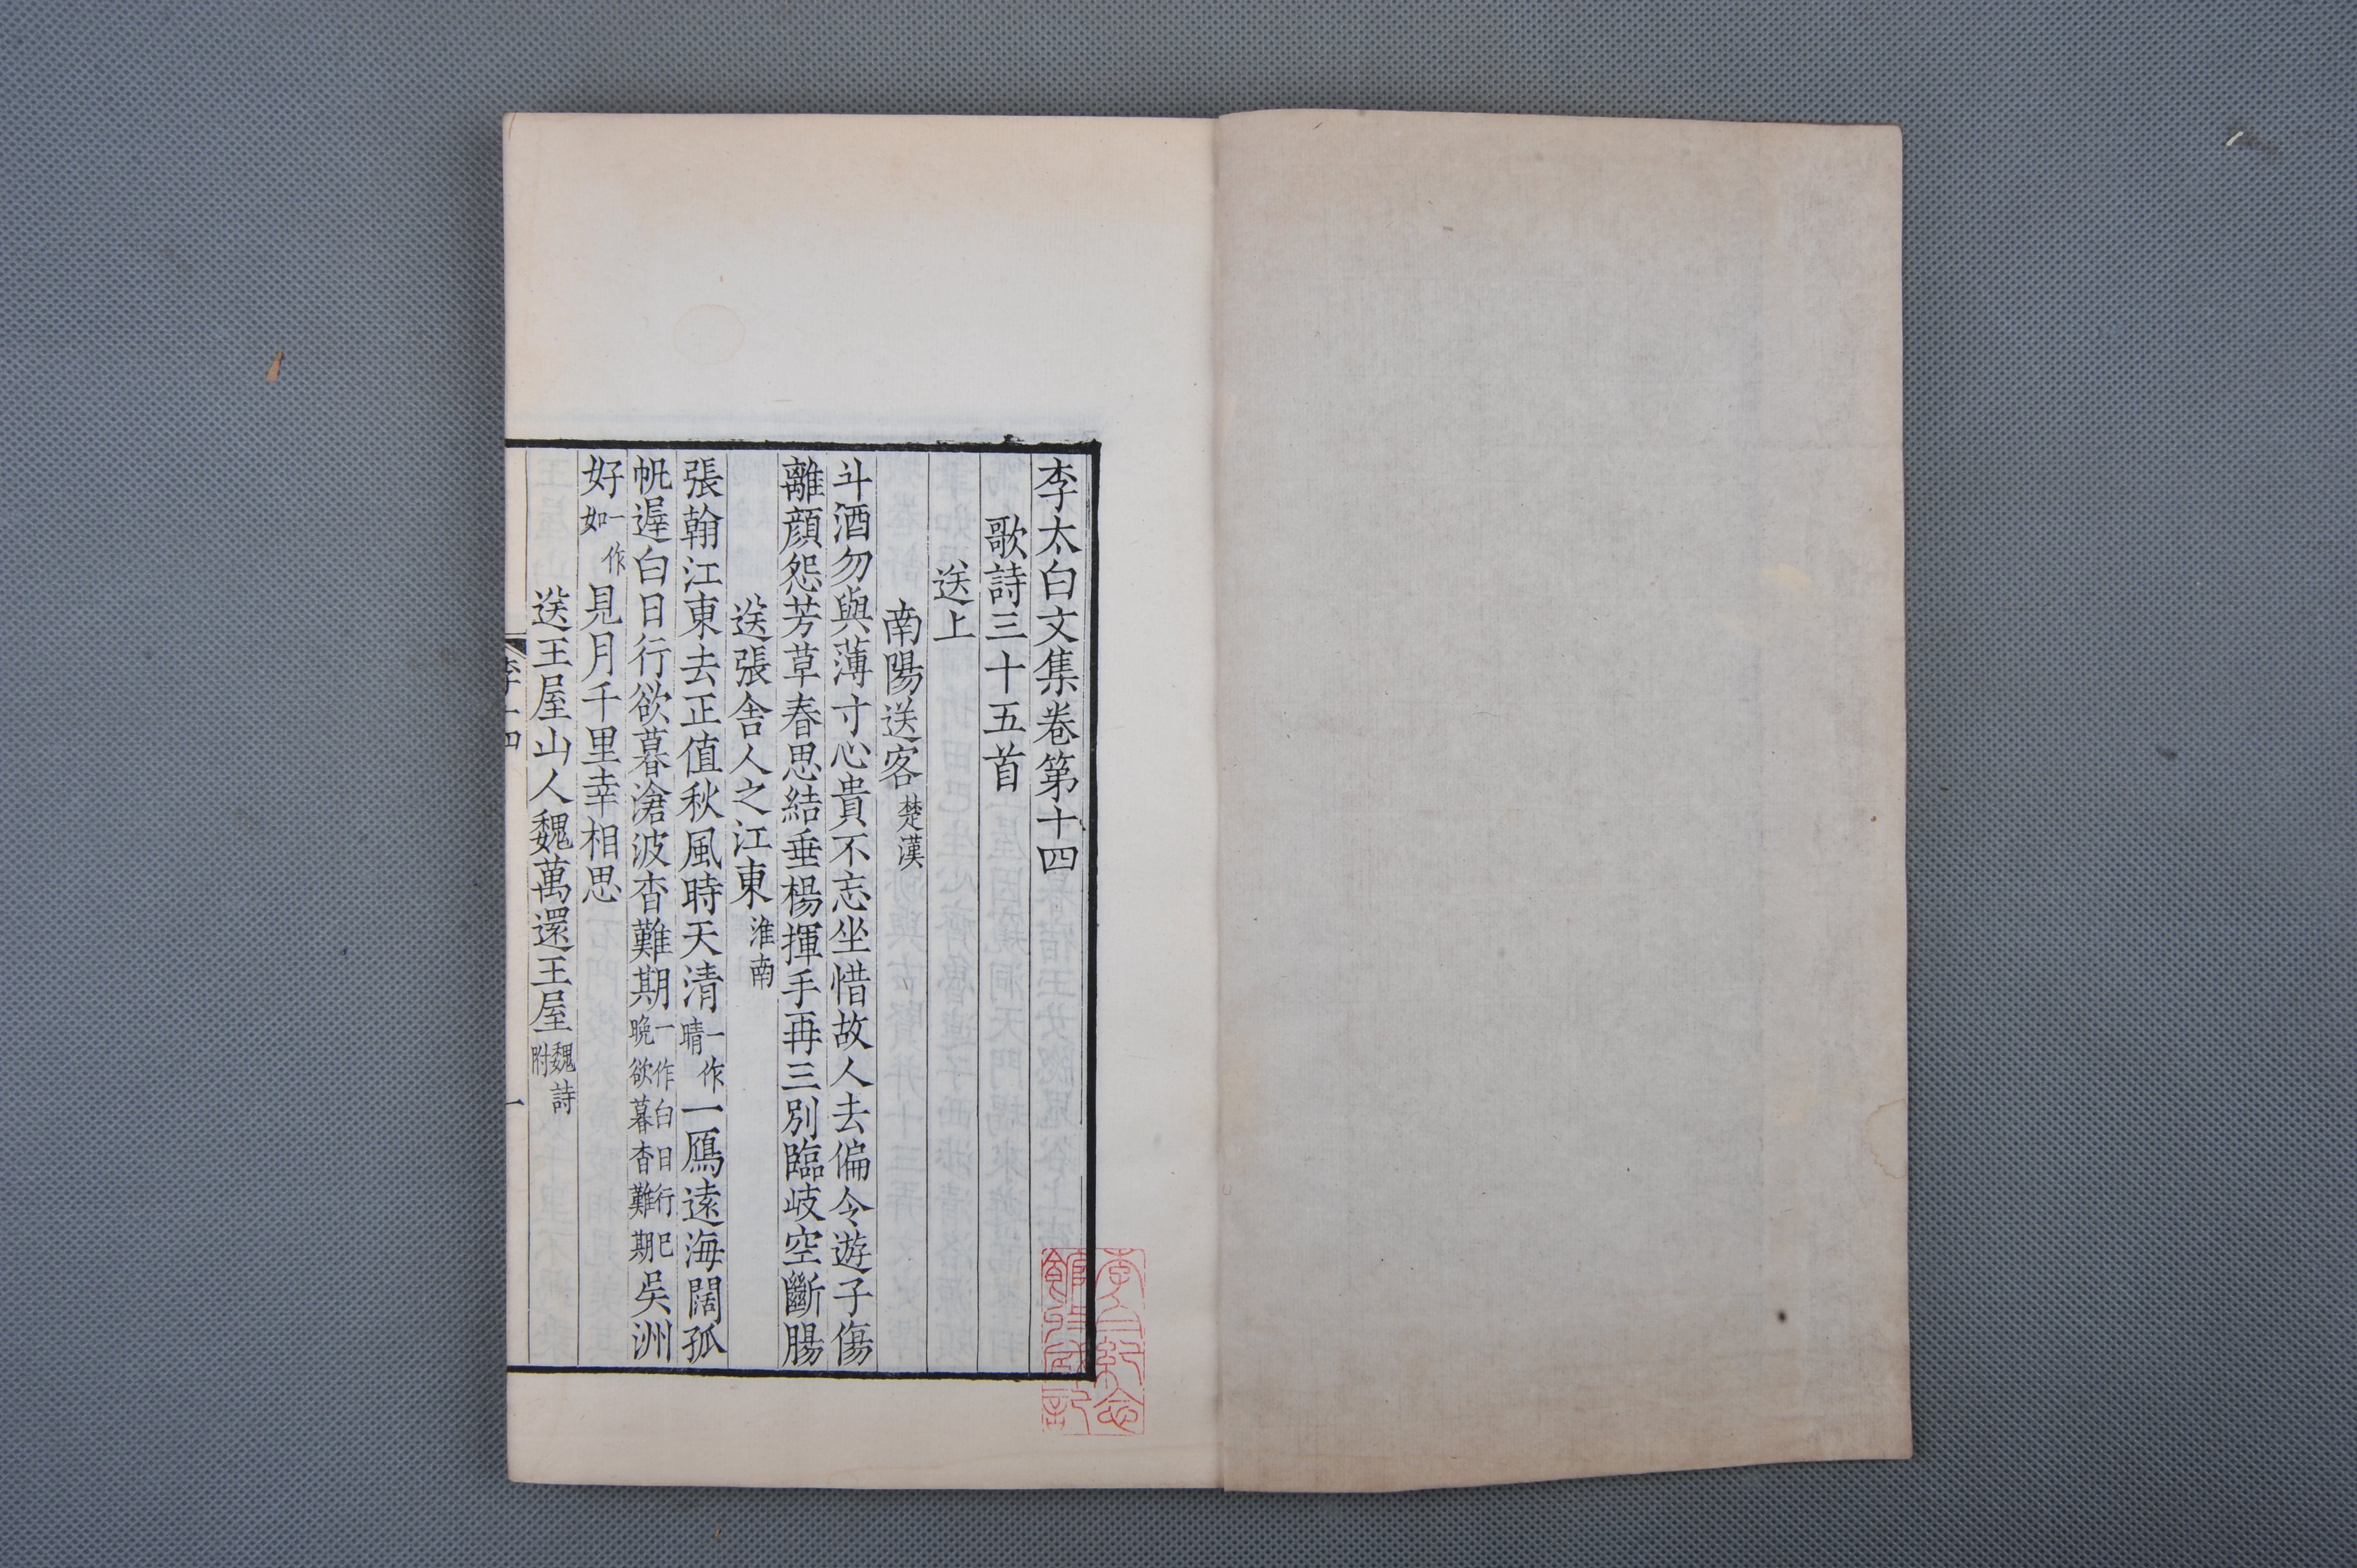 李太白文集卷第十四
歌詩三十五首
送上
南陽送客 楚漢
斗酒勿與薄寸心貴不忘坐惜故人去偏令遊子傷
離顔怨芳草春思結垂楊揮手再三別臨岐空斷腸
送張舍人之江東 淮南
張翰江東去正值秋風時天清一作晴一鴈遠海闊孤
帆遲白日行欲暮滄波杳難期一作白日行已晚欲暮杳難期吳洲
好一作如見月千里幸相思
送王屋山人魏萬還王屋 魏詩附
李十四
一